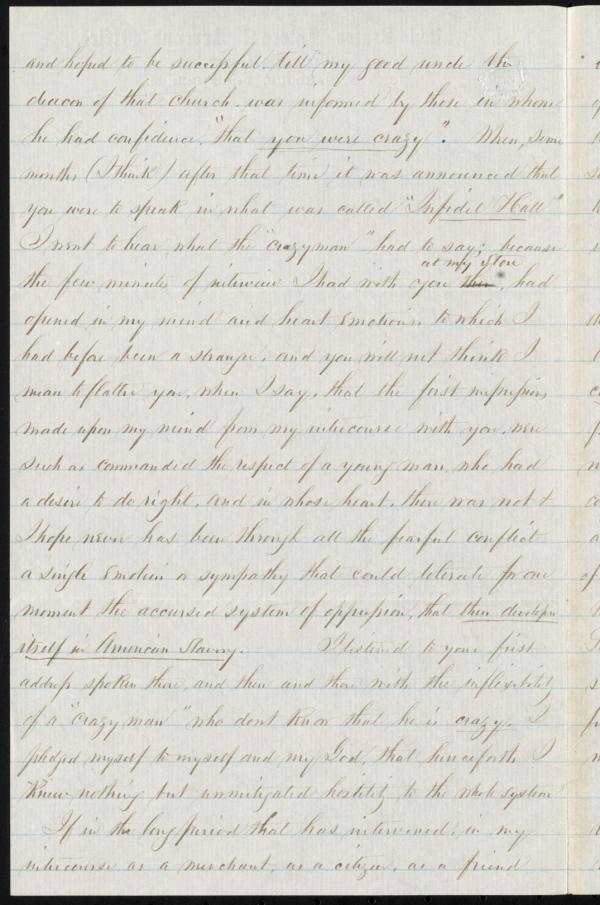 and hoped to be successful till my good uncle the
deacon of that church, was informed by those in whom
he had confidence, "that you were crazy". When, some
months (I think) after that time it was announced that
you were to speak in what was called "Infidel Hall"
I went to hear what the "crazy man" had to say; because
at my store
the few minutes of interview I had with you then, had
opened in my mind and heart emotions to which I
had before been a stranger, and you will not think I
mean to flatter you, when I say, that the first impressions
made upon my mind from my intercourse with you, were
such as commanded the respect of a young man, who had
a desire to do right, and in whose heart, there was not &
I hope never has been through all the fearful conflict
a single emotion or sympathy that could tolerate for one
moment the accursed system of oppression, that then develops
itself in American Slavery. I listened to your first
address spoken there, and then and there with the inflexibility
of a "crazy man" who don't know that he is crazy, I
pledged myself to myself and my God, that henceforth I
knew nothing but unmitigated hostility to the whole system
If in the long period that has intervened, in my
intercourse as a merchant, as a citizen, as a friend